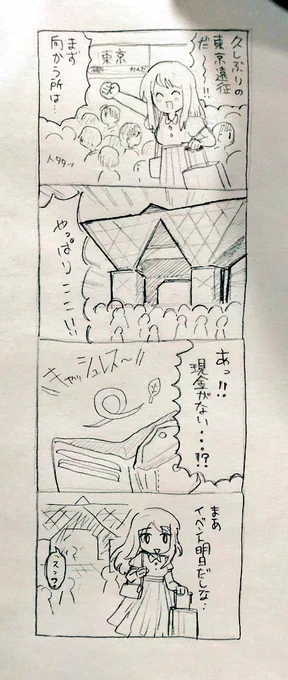 久しぶりの
東京遠征
だ〜!!
東京
かんだ
まず
向かう所は…
やっぱり
ここ!!
あっ!!
現金がない・・・!?
キャッシュレス〜!!
まあ
イベント明日だしな…
スッ…